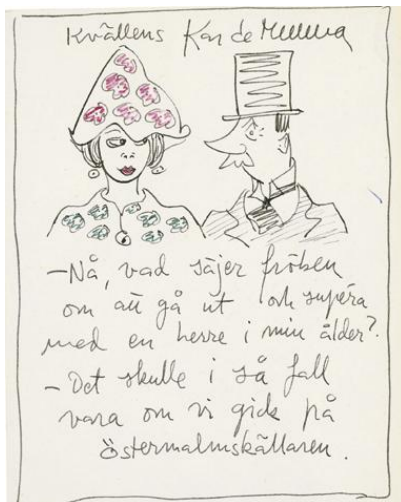 Kvällens Kar de Mumma
– Nå, vad säjer fröken
om att gå ut och supera
med en herre i min ålder?
– Det skulle i så fall
vara om vi gick på
Östermalmskällaren.